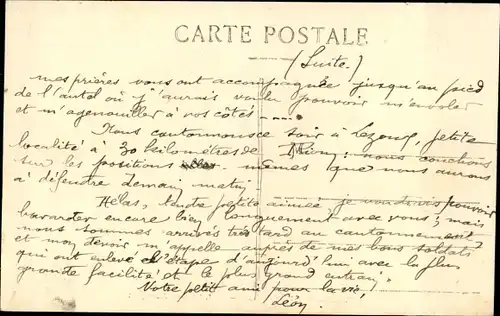 CARTE POSTALE
(Suite.)
mes prières vous ont accompagnée jusqu'au pied
de l'autel où j'aurais voulu pouvoir m'envoler
et m'agenouiller à vos côtés ----
Nous cantonnons ce soir à Lezoux, petite
localité à 30 kilomètres de Riom; nous couchons
sur les positions mêmes que nous aurons
à défendre demain matin.
Hélas, toute petite aimée je voudrais pouvoir
bavarder encore bien longuement avec vous; mais
nous sommes arrivés très tard au cantonnement
et mon devoir m'appelle auprès de mes bons soldats
qui ont enlevé l'étape d'aujourd'hui avec la plus
grande facilité et le plus grand entrain.
Votre petit ami pour la vie,
Léon